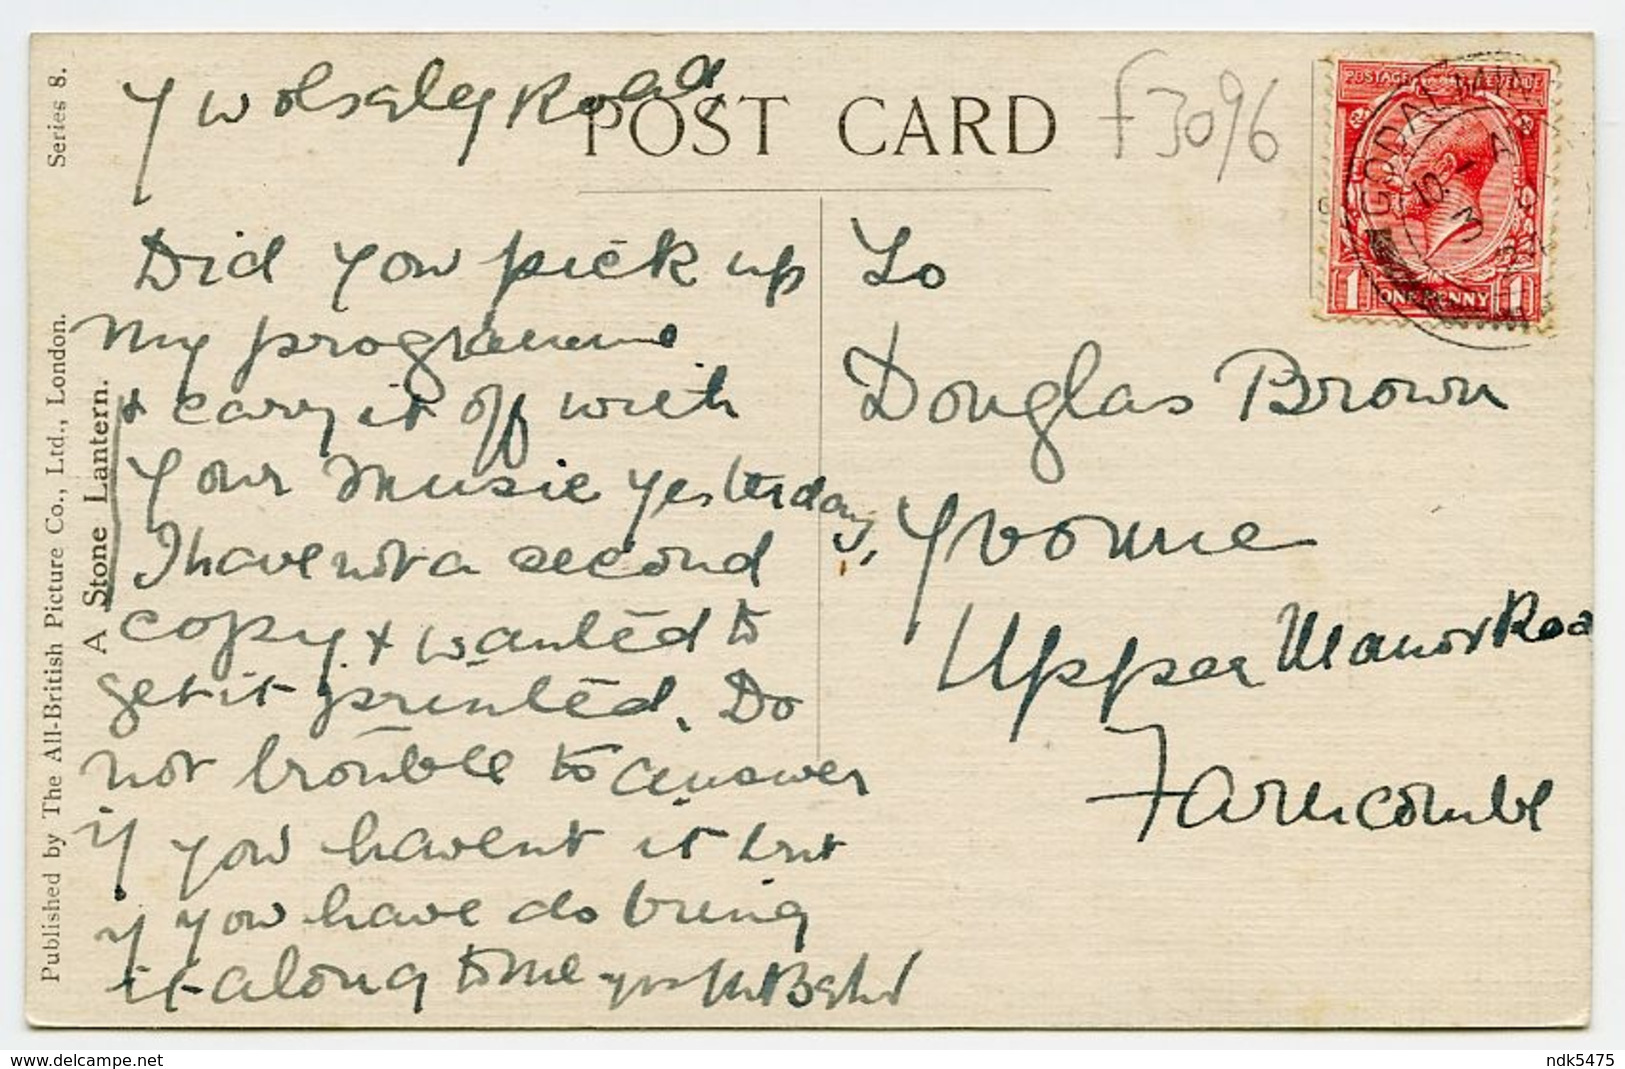 Wolseley Road
POST CARD
F3096
Did you pick up
my programme
& carry it off with
your music yesterday,
I have not a second
copy & wanted to
get it printed. Do
not trouble to answer
if you havent it but
if you have do bring
it along to me
To
Douglas Brown
Yvonne
Upper Manor Roa
Farncombe
POSTAGE REVENUE
1 ONE PENNY 1
GODALMIN
Series 8.
A Stone Lantern.
Published by The All-British Picture Co., Ltd., London.
www.delcampe.net
ndk5475